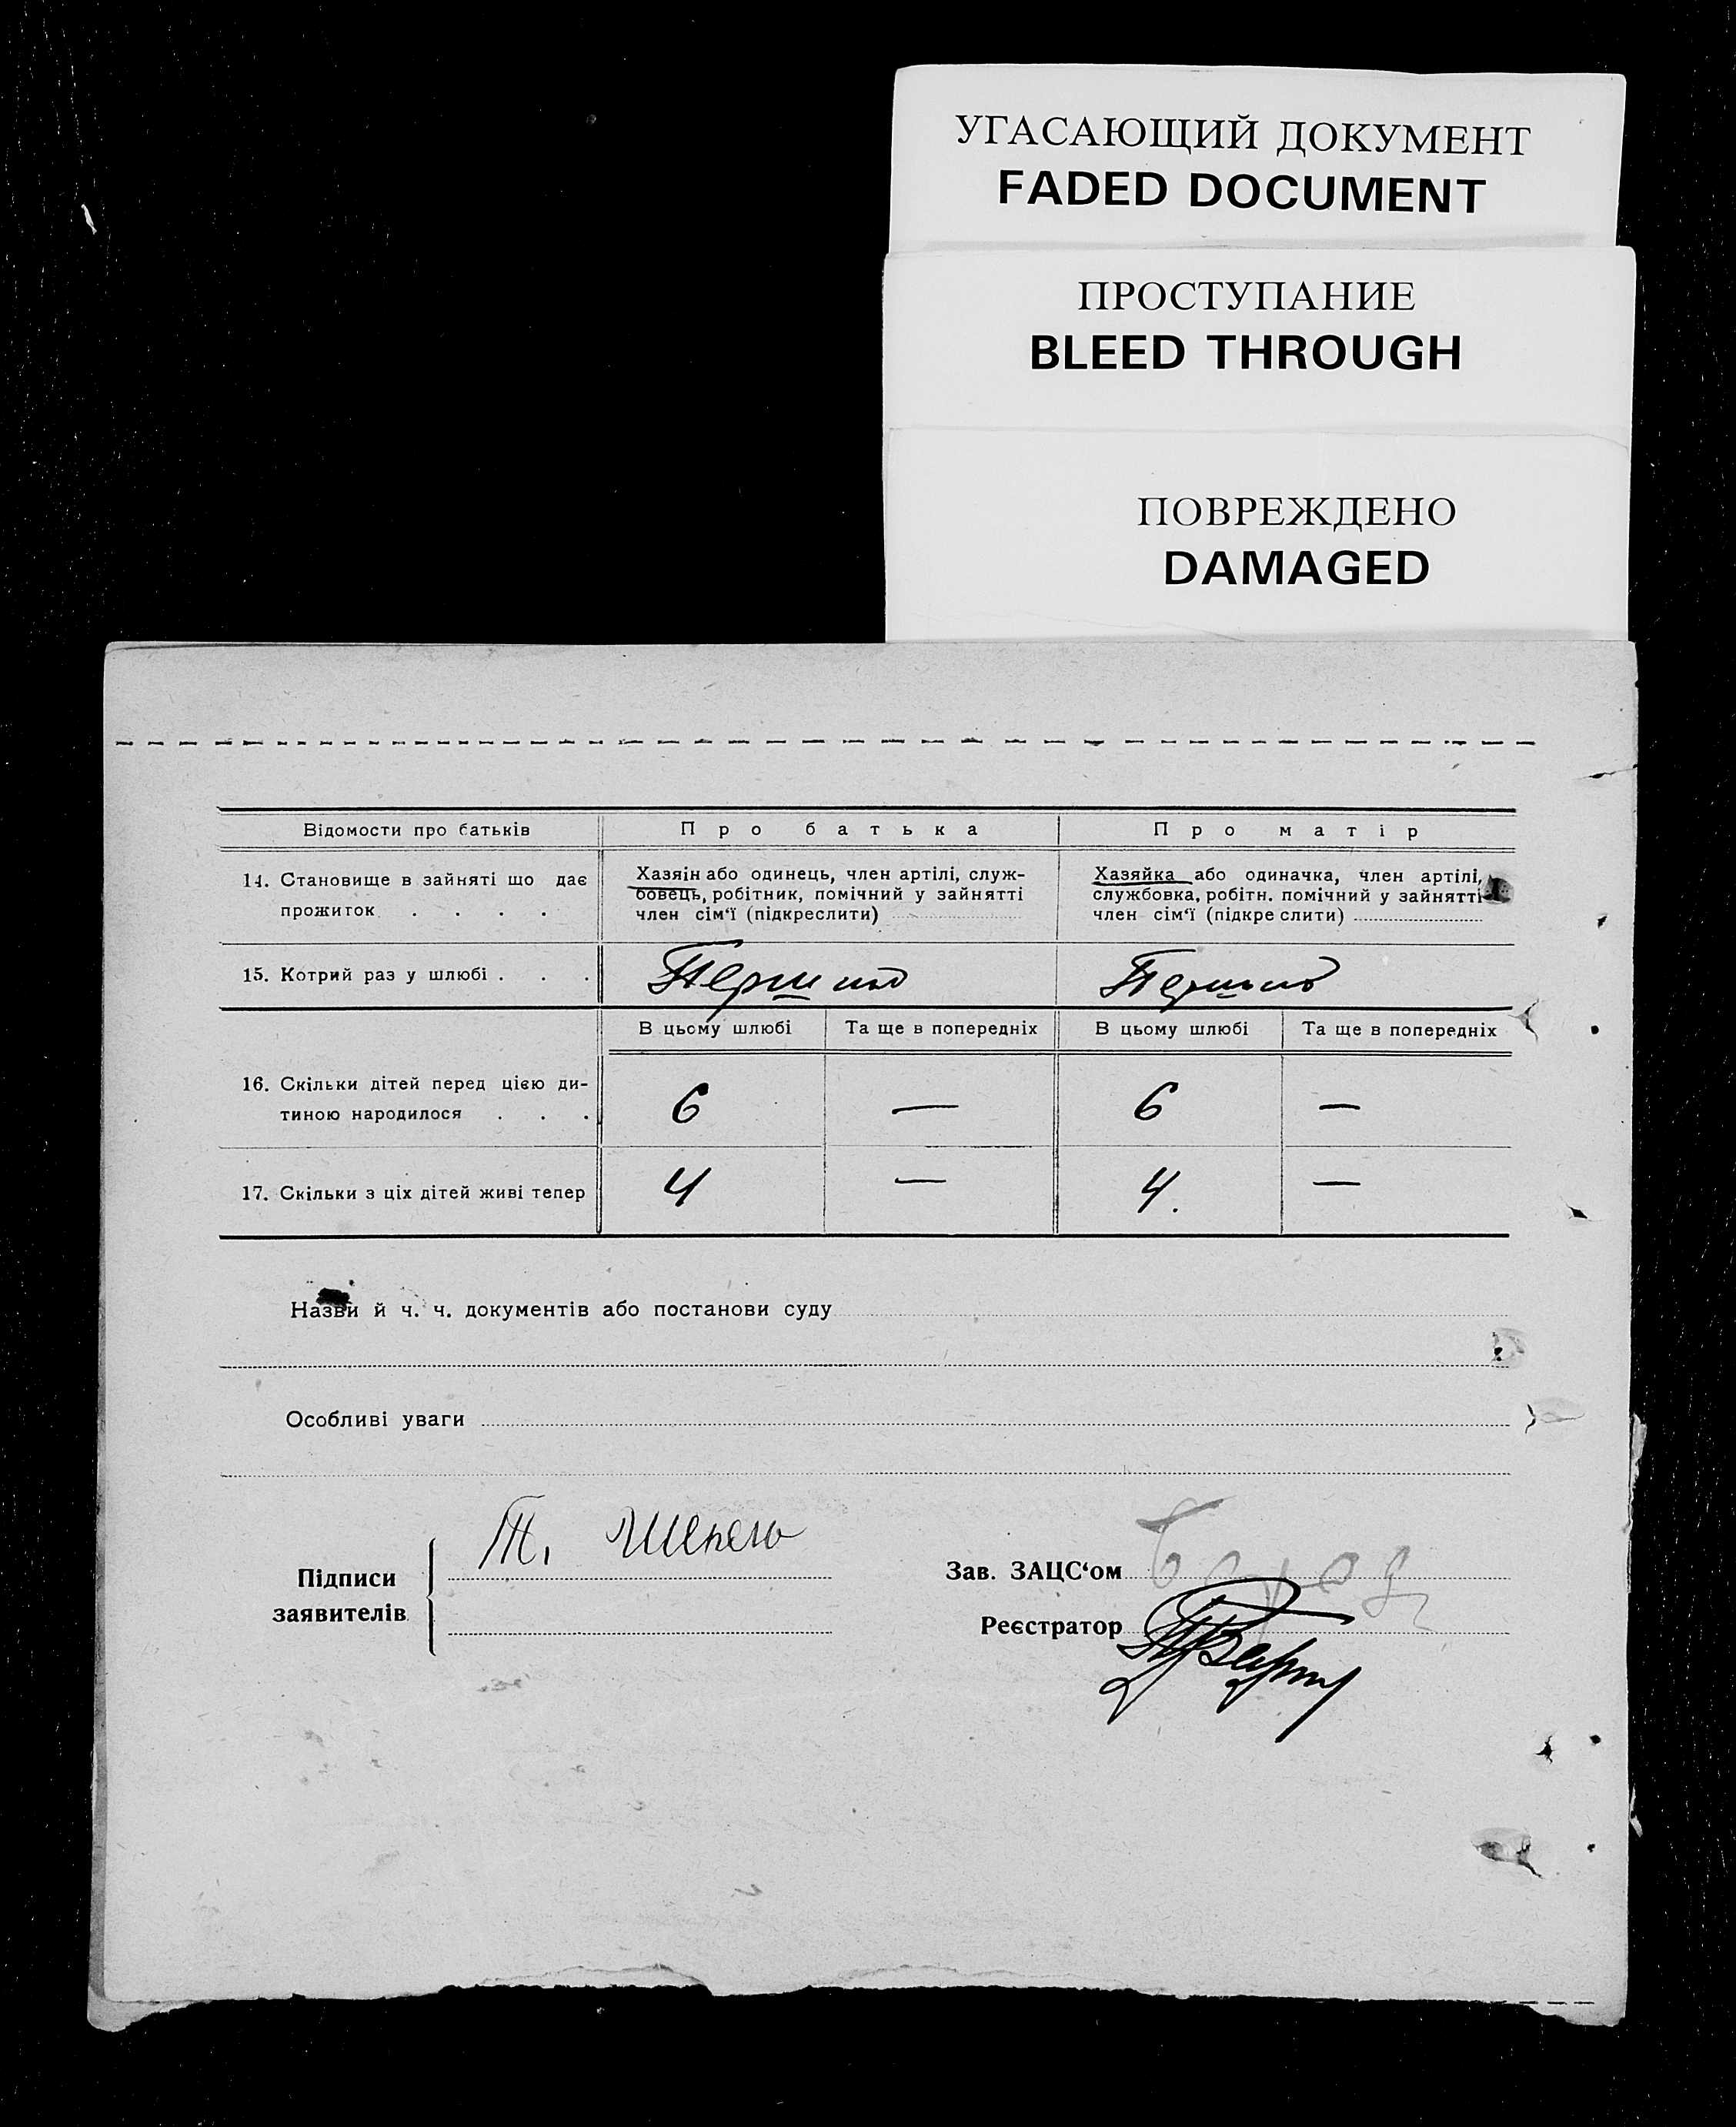 УГАСАЮЩИЙ ДОКУМЕНТ
FADED DOCUMENT
ПРОСТУПАНИЕ
BLEED THROUGH
ПОВРЕЖДЕНО
DAMAGED
Відомости про батьків
Про батька
Про матір
14. Становище в зайняті що дає
прожиток . . . .
Хазяін або одинець, член артілі, служ-
бовець, робітник, помічний у зайнятті
член сім‘ї (підкреслити)
Хазяйка або одиначка, член артілі,
службовка, робітн. помічний у зайнятті
член сім‘ї (підкре слити)
15. Котрий раз у шлюбі . . .
Першим
Першим
В цьому шлюбі
Та ще в попередніх
В цьому шлюбі
Та ще в попередніх
16. Скільки дітей перед цією ди-
тиною народилося . . .
6
—
6
—
17. Скільки з ціх дітей живі тепер
4
—
4.
—
Назви й ч. ч. документів або постанови суду
Особливі уваги
Підписи
заявителів
Т.
Зав. ЗАЦС‘ом
Реєстратор